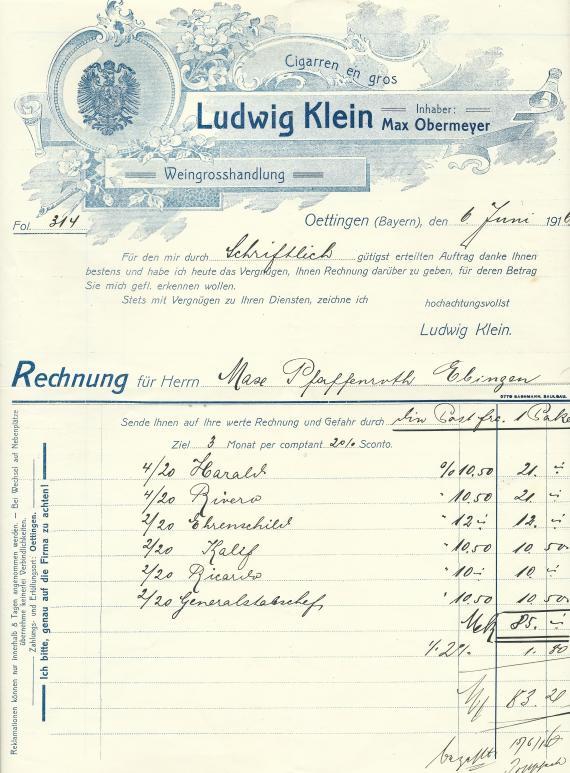 Cigarren en gros
Ludwig Klein Inhaber: Max Obermeyer
Weingrosshandlung
Fol. 314
Oettingen (Bayern), den 6 Juni 1916
Für den mir durch Schriftlich gütigst erteilten Auftrag danke Ihnen
bestens und habe ich heute das Vergnügen, Ihnen Rechnung darüber zu geben, für deren Betrag
Sie mich gefl. erkennen wollen.
Stets mit Vergnügen zu Ihren Diensten, zeichne ich hochachtungsvollst
Ludwig Klein.
Rechnung für Herrn Max Pfaffenroth Ebingen
OTTO BACHMANN, SAULGAU.
Sende Ihnen auf Ihre werte Rechnung und Gefahr durch Post frc. 1 Pake
Ziel 3 Monat per comptant 2% Sconto.
4/20 Harald % 10,50 21. "
4/20 Rivero " 10,50 21. "
2/20 Ehrenschild " 12 " 12. "
2/20 Kalif " 10,50 10. 50
2/20 Ricardo " 10 " 10. "
2/20 Generalstabschef " 10,50 10. 50
Mk 85. "
2% 1. 80
83. 20
bezahlt 15/6/16
Reklamationen können nur innerhalb 8 Tagen angenommen werden. — Bei Wechsel auf Nebenplätze
übernehme keinerlei Verbindlichkeiten.
Zahlungs- und Erfüllungsort: Oettingen.
Ich bitte, genau auf die Firma zu achten!